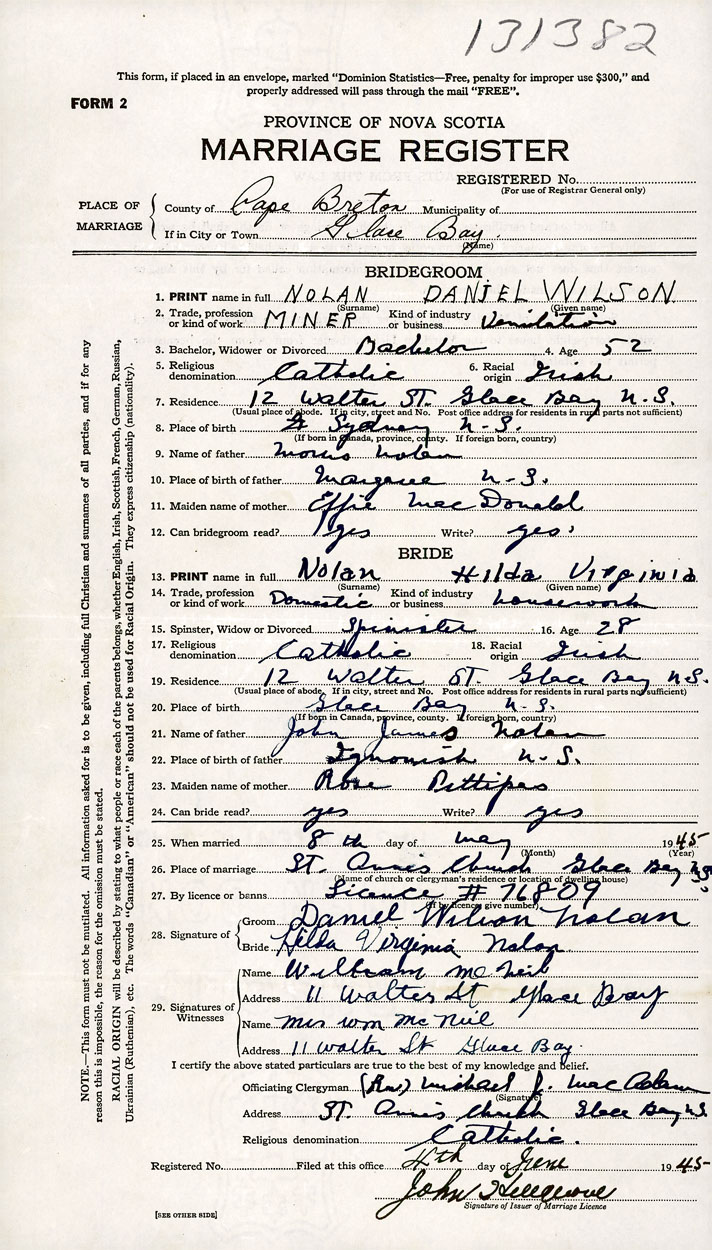 131382
This form, if placed in an envelope, marked "Dominion Statistics—Free, penalty for improper use $300," and
properly addressed will pass through the mail "FREE".
FORM 2
PROVINCE OF NOVA SCOTIA
MARRIAGE REGISTER
REGISTERED No.
(For use of Registrar General only)
PLACE OF MARRIAGE
County of Cape Breton Municipality of
If in City or Town Glace Bay
(Name)
BRIDEGROOM
1. PRINT name in full NOLAN DANIEL WILSON
(Surname) (Given name)
2. Trade, profession or kind of work MINER Kind of industry or business Venilation
3. Bachelor, Widower or Divorced Bachelor 4. Age 52
5. Religious denomination Catholic 6. Racial origin Irish
7. Residence 12 Walter ST. Glace Bay N.S.
(Usual place of abode. If in city, street and No. Post office address for residents in rural parts not sufficient)
8. Place of birth Sydney N-S.
(If born in Canada, province, county. If foreign born, country)
9. Name of father Morris Nolan
10. Place of birth of father Margaree N-S.
11. Maiden name of mother Effie MacDonald
12. Can bridegroom read? yes Write? yes
BRIDE
13. PRINT name in full Nolan Hilda Virginia
(Surname) (Given name)
14. Trade, profession or kind of work Domestic Kind of industry or business housework
15. Spinster, Widow or Divorced Spinister 16. Age 28
17. Religious denomination Catholic 18. Racial origin Irish
19. Residence 12 Walter ST. Glace Bay N.S.
(Usual place of abode. If in city, street and No. Post office address for residents in rural parts not sufficient)
20. Place of birth Glace Bay N-S.
(If born in Canada, province, county. If foreign born, country)
21. Name of father John James Nolan
22. Place of birth of father Ignonish N-S.
23. Maiden name of mother Rose Pittipas
24. Can bride read? yes Write? yes
25. When married 8th day of May 1945
(Month) (Year)
26. Place of marriage ST. Annis Church Glace Bay NS.
(Name of church or clergyman's residence or location of dwelling house)
27. By licence or banns Licence # 76809
(If by licence give number)
28. Signature of
Groom Daniel Wilson Nolan
Bride Hilda Virginia Nolan
29. Signatures of Witnesses
Name William McNeil
Address 11 Walter St Glace Bay
Name Mrs Wm McNeil
Address 11 Walter St Glace Bay.
I certify the above stated particulars are true to the best of my knowledge and belief.
Officiating Clergyman (Rev.) Michael J. MacAdam
(Signature)
Address ST. Annis Church Glace Bay N.S.
Religious denomination Catholic.
Registered No. Filed at this office 4th day of June 1945
John
Signature of Issuer of Marriage Licence
[SEE OTHER SIDE]
NOTE.—This form must not be mutilated. All information asked for is to be given, including full Christian and surnames of all parties, and if for any
reason this is impossible, the reason for the omission must be stated.
RACIAL ORIGIN will be described by stating to what people or race each of the parents belongs, whether English, Irish, Scottish, French, German, Russian,
Ukrainian (Ruthenian), etc. The words "Canadian" or "American" should not be used for Racial Origin. They express citizenship (nationality).